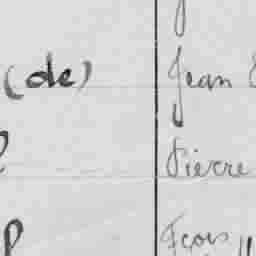 (de) Jean
Pierre
Fcois